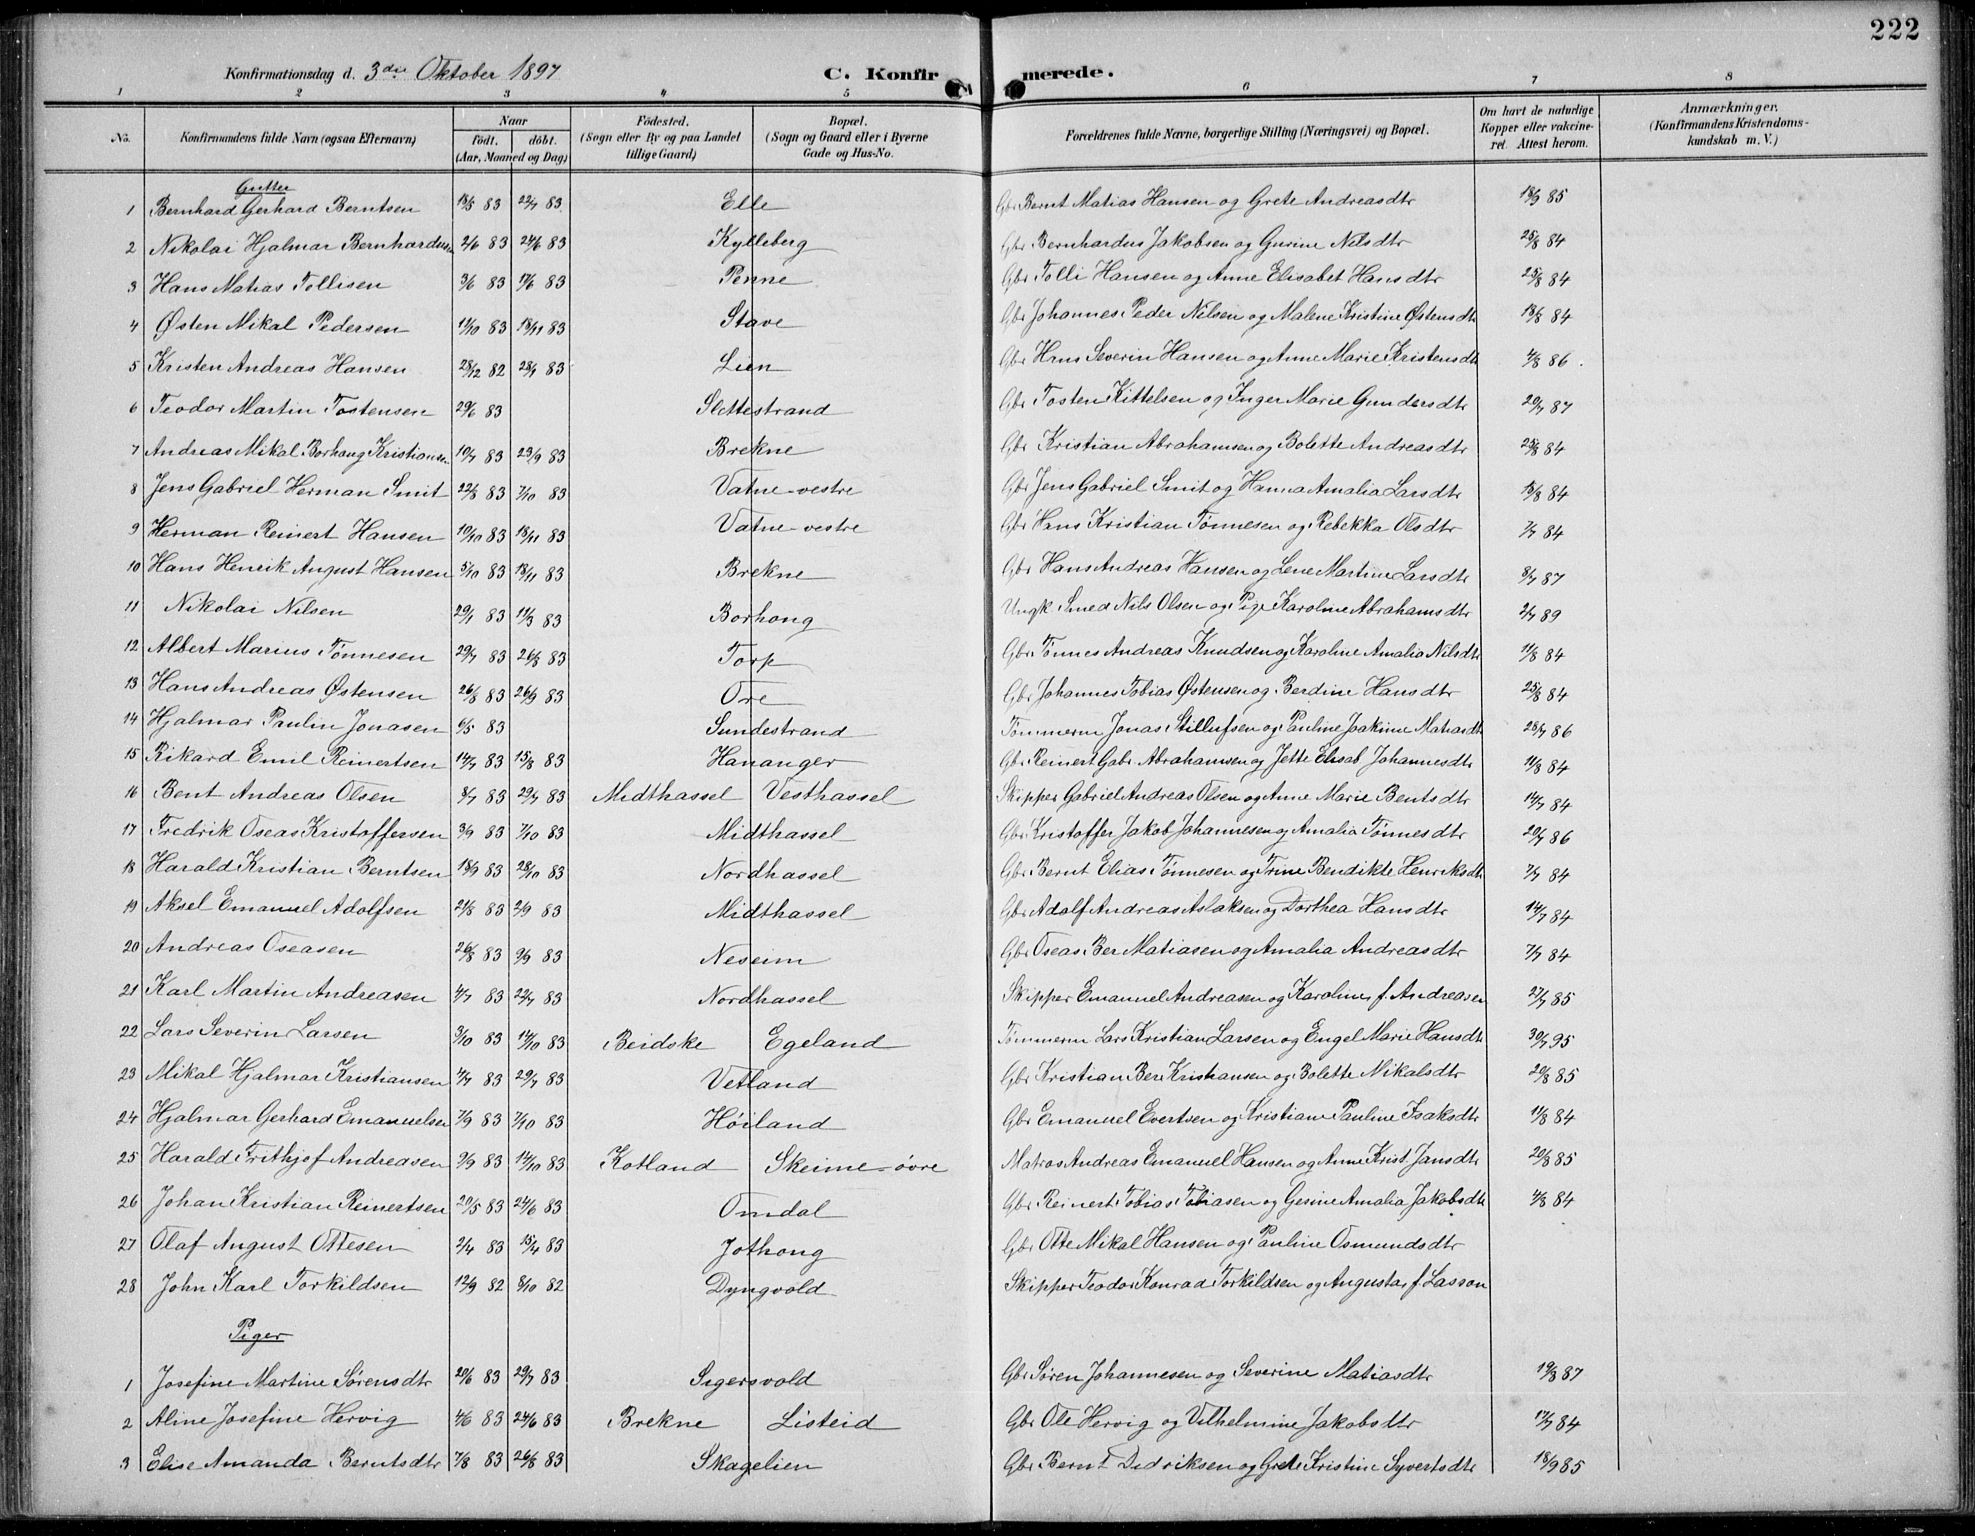 222
Konfirmationsdag d. 3die Oktober 1897 C. Konfirmerede.
1 2 3 4 5 6 7 8
No. Konfirmandens fulde Navn (ogsaa Efternavn) Naar født. døbt. (Aar, Maaned og Dag) Fødested. (Sogn eller By og paa Landet tillige Gaard) Bopæl. (Sogn og Gaard eller i Byerne Gade og Hus-No. Forældrenes fulde Navne, borgerlige Stilling (Næringsvei) og Bopæl. Om havt de naturlige Kopper eller vakcineret. Attest herom. Anmærkninger. (Konfirmandens Kristendomskundskab m. V.)
Gutter
1 Bernhard Gerhard Berntsen 83 22/7 83 Elle Gbr Bernt Matias Hansen og Grete Andreasdtr 18/9 85
2 Nikolai Hjalmar Bernhardusen 2/6 83 24/6 83 Kylleberg Gbr Bernhardus Jakobsen og Gurine Nilsdtr 25/8 84
3 Hans Matias Tollisen 3/6 83 17/6 83 Penne Gbr Tolli Hansen og Anne Elisabet Hansdtr 25/8 84
4 Østen Mikal Pedersen 11/10 83 18/11 83 Stave Gbr Johannes Peder Nilsen og Malene Kristine Østensdtr 18/8 84
5 Kristen Andreas Hansen 28/12 82 28/1 83 Lien Gbr Hans Severin Hansen og Anne Marie Kristensdtr 4/8 86
6 Teodor Martin Tostensen 29/6 83 Slettestrand Gbr Tosten Kittelsen og Inger Marie Gundersdtr 20/7 87
7 Andreas Mikal Borhaug Kristiansen 10/7 83 23/9 83 Brekne Gbr Kristian Abrahamsen og Bolette Andreasdtr 25/8 84
8 Jens Gabriel Herman Smit 22/8 83 7/10 83 Vatne-vestre Gbr Jens Gabriel Smit og Hanna Amalia Larsdtr 18/8 84
9 Herman Reinert Hansen 10/10 83 18/11 83 Vatne-vestre Gbr Hans Kristian Tønnesen og Rebekka Olsdtr 7/7 84
10 Hans Henrik August Hansen 5/10 83 18/11 83 Brekne Gbr Hans Andreas Hansen og Lene Martine Larsdtr 8/7 87
11 Nikolai Nilsen 29/1 83 11/3 83 Borhaug Ungk Smed Nils Olsen og Pige Karoline Abrahamsdtr 2/7 89
12 Albert Marius Tønnesen 29/7 83 26/8 83 Torp Gbr Tønnes Andreas Knudsen og Karoline Amalia Nilsdtr 11/8 84
13 Hans Andreas Østensen 26/8 83 26/9 83 Ore Gbr Johannes Tobias Østensen og Berdine Hansdtr 25/8 84
14 Hjalmar Paulin Jonasen 6/5 83 Sundestrand Tømmerm Jonas Stillufsen og Pauline Joakime Matiasdtr 28/7 86
15 Rikard Emil Reinertsen 14/7 83 15/8 83 Hananger Gbr Reinert Gabr. Abrahamsen og Jette Elisab Johannesdtr 11/8 84
16 Bent Andreas Olsen 8/7 83 29/7 83 Midthassel Vesthassel Skipper Gabriel Andreas Olsen og Anne Marie Bentsdtr 14/7 84
17 Fredrik Oseas Kristoffersen 3/9 83 7/10 83 Midthassel Gbr Kristoffer Jakob Johannesen og Amalia Tønnesdtr 20/7 86
18 Harald Kristian Berntsen 18/9 83 28/10 83 Nordhassel Gbr Bernt Elias Tønnesen og Trine Bendikte Henriksdtr 7/7 84
19 Aksel Emanuel Adolfsen 21/8 83 2/9 83 Midthassel Gbr Adolf Andreas Aslaksen og Dorthea Hansdtr 14/7 84
20 Andreas Oseasen 26/8 83 9/9 83 Neseim Gbr Oseas Ber Matiasen og Amalia Andreasdtr 7/7 84
21 Karl Martin Andreasen 4/7 83 22/7 83 Nordhassel Skipper Emanuel Andreasen og Karoline f. Andreasen 27/7 85
22 Lars Severin Larsen 3/10 83 14/10 83 Beidske Egeland Tømmerm Lars Kristian Larsen og Engel Marie Hansdtr 30/7 95
23 Mikal Hjalmar Kristiansen 4/7 83 29/7 83 Vetland Gbr Kristian Ber Kristiansen og Bolette Mikalsdtr 20/8 85
24 Hjalmar Gerhard Emanuelsen 7/9 83 7/10 83 Høiland Gbr Emanuel Evertsen og Kristiane Pauline Isaksdtr 11/8 84
25 Harald Frithjof Andreasen 9/9 83 14/10 83 Kotland Skeime-øvre Matros Andreas Emanuel Hansen og Anne Krist. Jansdtr 20/8 85
26 Johan Kristian Reinertsen 20/5 83 24/6 83 Omdal Gbr Reinert Tobias Tobiasen og Gesine Amalia Jakobsdtr 4/8 84
27 Olaf August Ottesen 2/4 83 15/4 83 Jothong Gbr Otte Mikal Hansen og Pauline Osmundsdtr
28 John Karl Torkildsen 12/9 82 8/10 82 Dyngvold Skipper Teodor Konrad Torkildsen og Augusta f. Lasson
Piger
1 Josefine Martine Sørensdtr 20/6 83 29/7 83 Sigersvold Gbr Søren Johannesen og Severine Matiasdtr 19/8 87
2 Aline Josefine Hervig 4/6 83 24/6 83 Brekne Listeid Gbr Ole Hervig og Vilhelmine Jakobsdtr 17/7 84
3 Elise Amanda Berntsdtr 7/8 83 26/8 83 Skagelien Gbr Bernt Didriksen og Grete Kristine Syvertsdtr 18/9 85